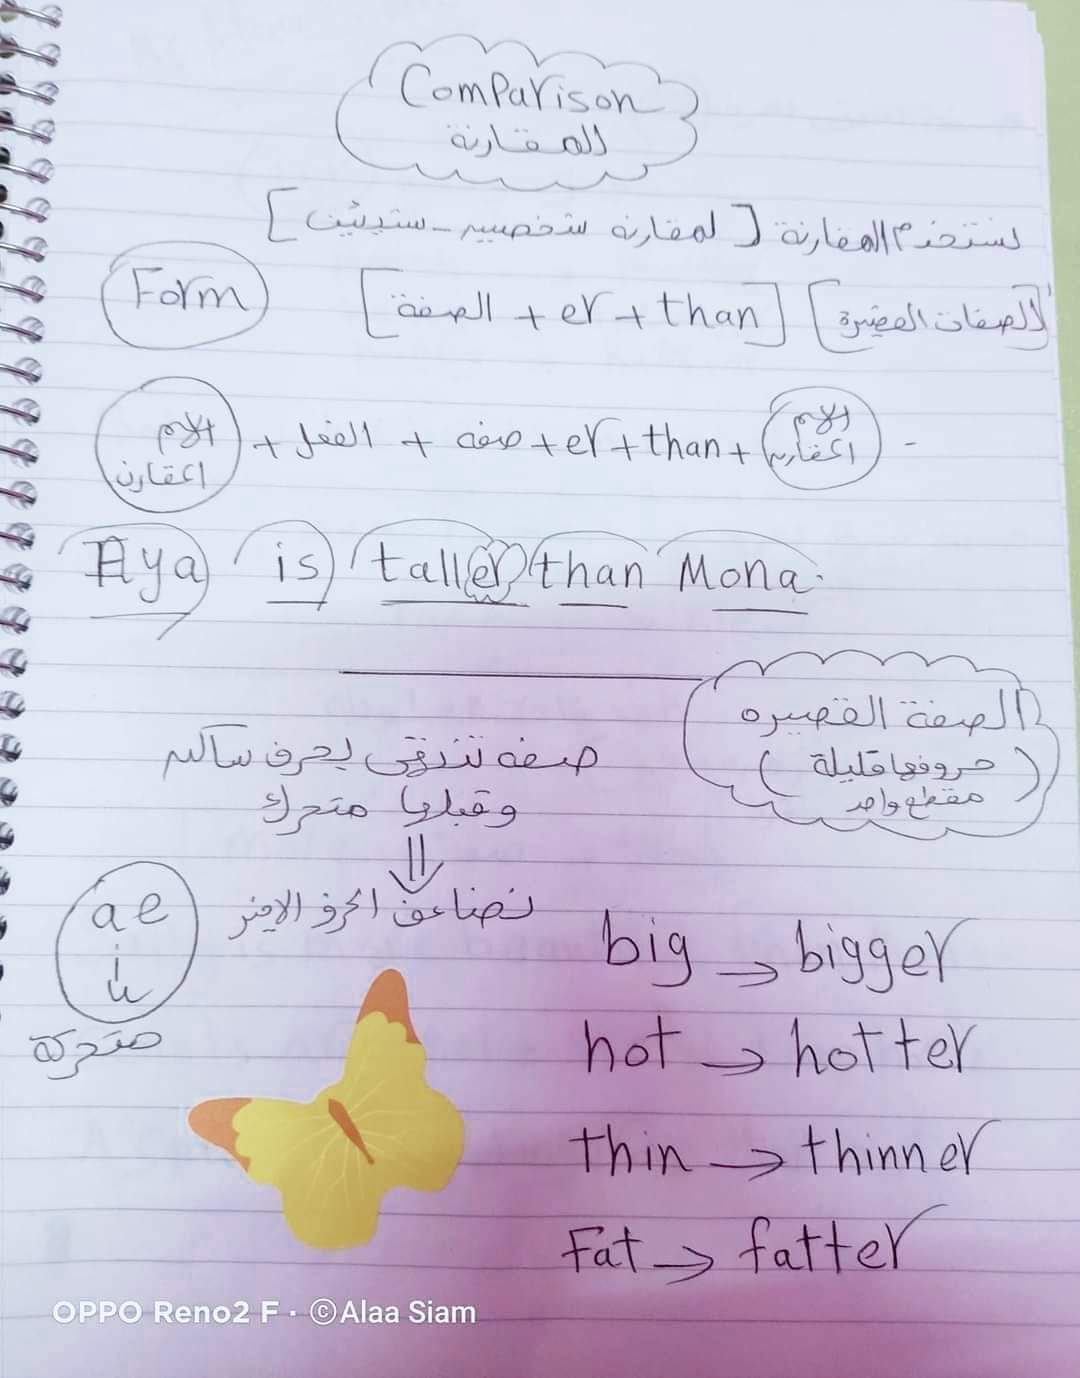 Comparison
المقارنة
نستخدم المقارنة [لمقارنة شخصين - شيئين]
Form [الصفة + er + than] [الصفات القصيرة]
الاسم المقارن + الفعل + صفه + er + than + الاسم المقارن
Aya is taller than Mona.
الصفة القصيره
(حروفها قليلة
مقطع واحد)
صفه تنتهى بحرف ساكن
وقبلها متحرك
⇓
نضاعف الحرف الاخير
a e
i
u
متحركة
big → bigger
hot → hotter
thin → thinner
Fat → fatter
OPPO Reno2 F · ©Alaa Siam